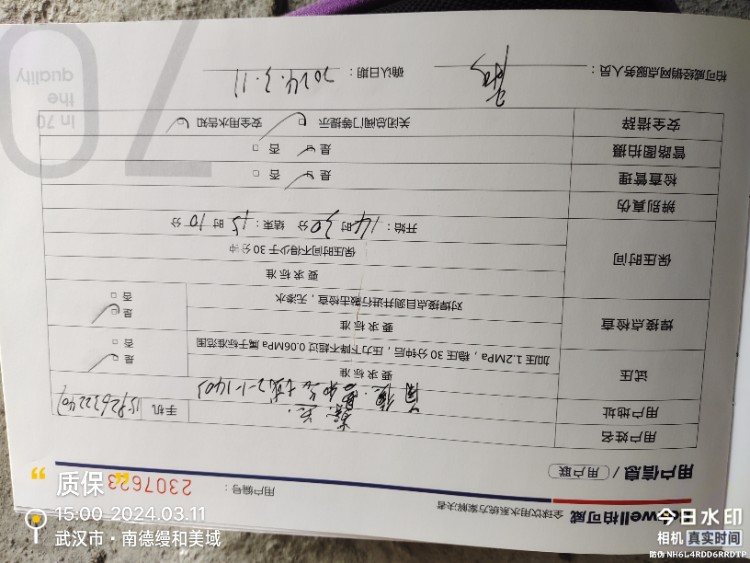 rockwell柏可威 全球饮用水系统方案解决者
用户信息 / 用户联
用户编号: 2307623
用户姓名
用户地址 手机
试压
要求标准
加压1.2MPa，稳压30分钟后，压力下降不超过0.06MPa属于标准范围
是
否
焊接点检查
要求标准
对焊接点目测并进行敲击检查，无渗水
是
否
保压时间
要求标准
保压时间不得少于30分钟
开始：14时30分 结束：15时10分
辨别真伪
检查管理 是 否
管路图拍摄 是 否
安全措辞 关闭总阀门等提示 安全用水告知
柏可威经销网点服务人员：
确认日期：2024.3.11
In 70
the
quality
70
质保
15:00 2024.03.11
武汉市·南德缦和美域
今日水印
相机 真实时间
防伪 NH6L4RDD6RRDTP